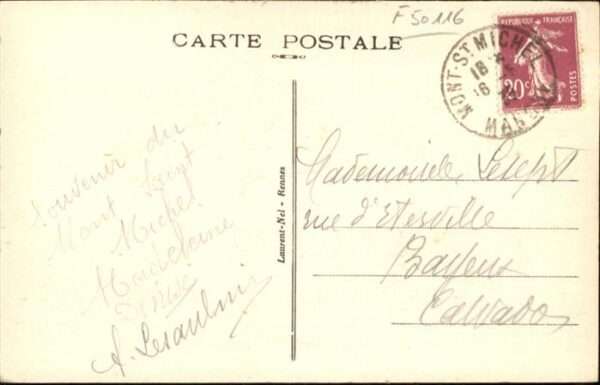 F 50116
CARTE POSTALE
MONT-ST MICHEL
18
16
REPUBLIQUE FRANÇAISE
20c
POSTES
Souvenir du
Mont Saint
Michel
Madeleine
Laurent-Nel - Rennes
Mademoiselle
rue d'Eterville
Bayeux
Calvados